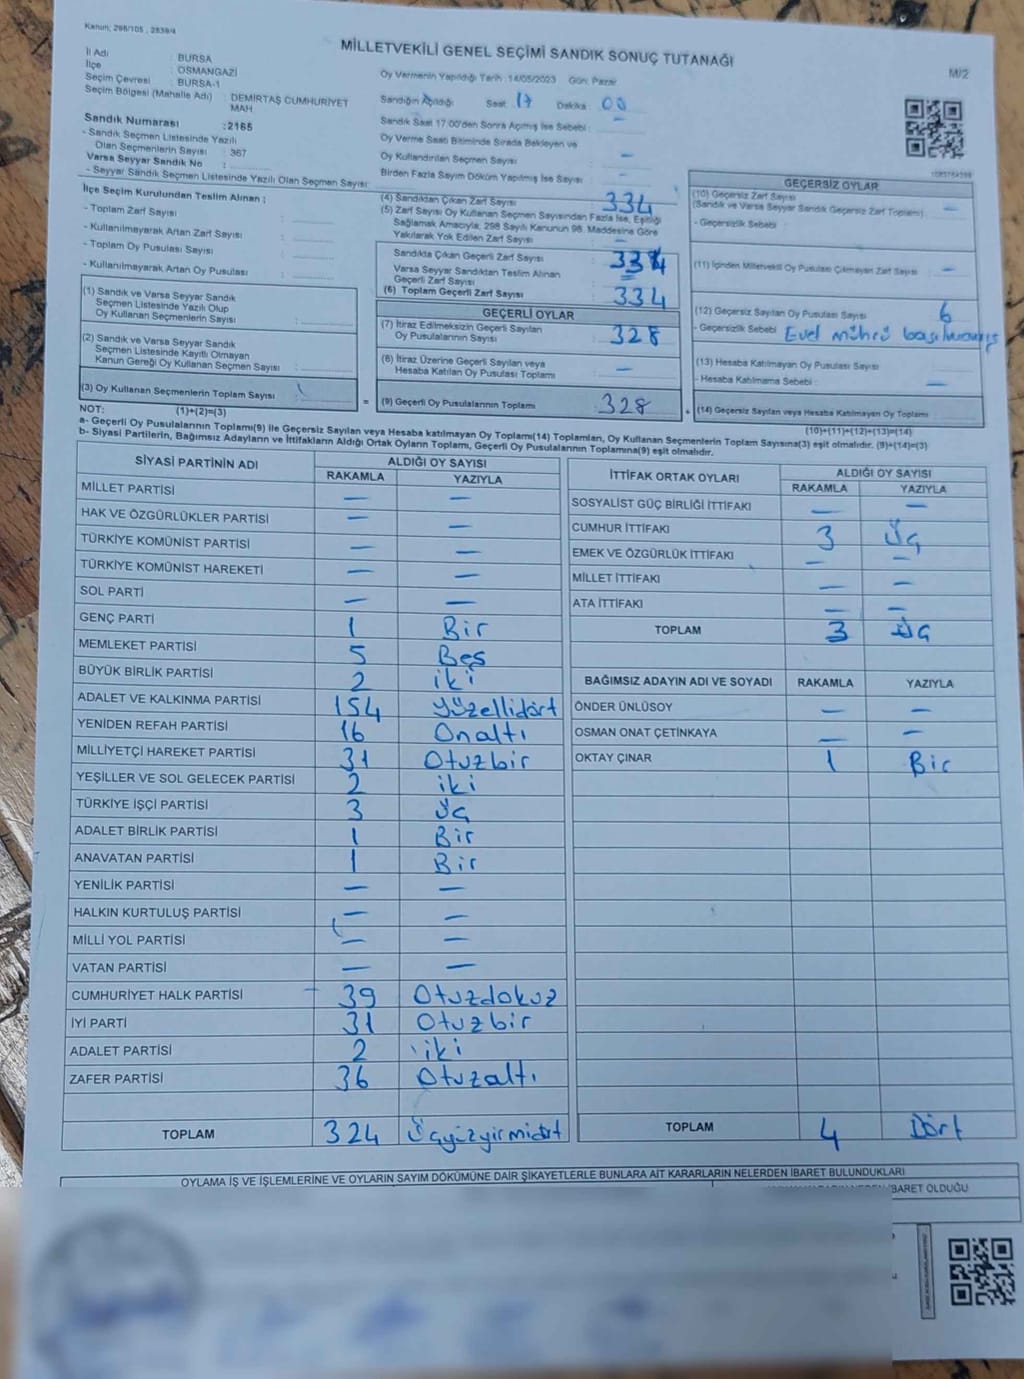 Kanun: 298/105 , 2839/4
MİLLETVEKİLİ GENEL SEÇİMİ SANDIK SONUÇ TUTANAĞI
M/2
İl Adı : BURSA
İlçe : OSMANGAZİ
Seçim Çevresi : BURSA-1
Seçim Bölgesi (Mahalle Adı) : DEMİRTAŞ CUMHURİYET MAH
Sandık Numarası : 2165
- Sandık Seçmen Listesinde Yazılı
Olan Seçmenlerin Sayısı : 367
Varsa Seyyar Sandık No :
- Seyyar Sandık Seçmen Listesinde Yazılı Olan Seçmen Sayısı:
Oy Vermenin Yapıldığı Tarih : 14/05/2023 Gün: Pazar
Sandığın Açıldığı Saat 17 Dakika 00
Sandık Saat 17:00'den Sonra Açılmış İse Sebebi : —
Oy Verme Saati Bitiminde Sırada Bekleyen ve
Oy Kullandırılan Seçmen Sayısı —
Birden Fazla Sayım Döküm Yapılmış İse Sayısı —
İlçe Seçim Kurulundan Teslim Alınan ;
- Toplam Zarf Sayısı :
- Kullanılmayarak Artan Zarf Sayısı :
- Toplam Oy Pusulası Sayısı :
- Kullanılmayarak Artan Oy Pusulası :
(1) Sandık ve Varsa Seyyar Sandık
Seçmen Listesinde Yazılı Olup
Oy Kullanan Seçmenlerin Sayısı :
(2) Sandık ve Varsa Seyyar Sandık
Seçmen Listesinde Kayıtlı Olmayan
Kanun Gereği Oy Kullanan Seçmen Sayısı :
(3) Oy Kullanan Seçmenlerin Toplam Sayısı :
(1)+(2)=(3)
(4) Sandıktan Çıkan Zarf Sayısı 334
(5) Zarf Sayısı Oy Kullanan Seçmen Sayısından Fazla İse, Eşitliği
Sağlamak Amacıyla, 298 Sayılı Kanunun 98. Maddesine Göre
Yakılarak Yok Edilen Zarf Sayısı —
Sandıkta Çıkan Geçerli Zarf Sayısı 334
Varsa Seyyar Sandıktan Teslim Alınan
Geçerli Zarf Sayısı : —
(6) Toplam Geçerli Zarf Sayısı 334
GEÇERLİ OYLAR
(7) İtiraz Edilmeksizin Geçerli Sayılan
Oy Pusulalarının Sayısı : 328
(8) İtiraz Üzerine Geçerli Sayılan veya
Hesaba Katılan Oy Pusulası Toplamı —
= (9) Geçerli Oy Pusulalarının Toplamı 328
GEÇERSİZ OYLAR
(10) Geçersiz Zarf Sayısı
(Sandık ve Varsa Seyyar Sandık Geçersiz Zarf Toplamı) : —
- Geçersizlik Sebebi :
(11) İçinden Milletvekili Oy Pusulası Çıkmayan Zarf Sayısı —
(12) Geçersiz Sayılan Oy Pusulası Sayısı 6
- Geçersizlik Sebebi Evet mührü basılmamış
(13) Hesaba Katılmayan Oy Pusulası Sayısı
- Hesaba Katılmama Sebebi : —
+ (14) Geçersiz Sayılan veya Hesaba Katılmayan Oy Toplamı
(10)+(11)+(12)+(13)=(14)
NOT:
a- Geçerli Oy Pusulalarının Toplamı(9) ile Geçersiz Sayılan veya Hesaba katılmayan Oy Toplamı(14) Toplamları, Oy Kullanan Seçmenlerin Toplam Sayısına(3) eşit olmalıdır. (9)+(14)=(3)
b- Siyasi Partilerin, Bağımsız Adayların ve İttifakların Aldığı Ortak Oyların Toplamı, Geçerli Oy Pusulalarının Toplamına(9) eşit olmalıdır.
SİYASİ PARTİNİN ADI ALDIĞI OY SAYISI
RAKAMLA YAZIYLA
MİLLET PARTİSİ — —
HAK VE ÖZGÜRLÜKLER PARTİSİ — —
TÜRKİYE KOMÜNİST PARTİSİ — —
TÜRKİYE KOMÜNİST HAREKETİ — —
SOL PARTİ — —
GENÇ PARTİ 1 Bir
MEMLEKET PARTİSİ 5 Beş
BÜYÜK BİRLİK PARTİSİ 2 iki
ADALET VE KALKINMA PARTİSİ 154 yüzellidört
YENİDEN REFAH PARTİSİ 16 Onaltı
MİLLİYETÇİ HAREKET PARTİSİ 31 Otuzbir
YEŞİLLER VE SOL GELECEK PARTİSİ 2 iki
TÜRKİYE İŞÇİ PARTİSİ 3 Üç
ADALET BİRLİK PARTİSİ 1 Bir
ANAVATAN PARTİSİ 1 Bir
YENİLİK PARTİSİ — —
HALKIN KURTULUŞ PARTİSİ — —
MİLLİ YOL PARTİSİ — —
VATAN PARTİSİ — —
CUMHURİYET HALK PARTİSİ 39 Otuzdokuz
İYİ PARTİ 31 Otuzbir
ADALET PARTİSİ 2 iki
ZAFER PARTİSİ 36 Otuzaltı
TOPLAM 324 Üçyüzyirmidört
İTTİFAK ORTAK OYLARI ALDIĞI OY SAYISI
RAKAMLA YAZIYLA
SOSYALİST GÜÇ BİRLİĞİ İTTİFAKI — —
CUMHUR İTTİFAKI 3 Üç
EMEK VE ÖZGÜRLÜK İTTİFAKI — —
MİLLET İTTİFAKI — —
ATA İTTİFAKI — —
TOPLAM 3 Üç
BAĞIMSIZ ADAYIN ADI VE SOYADI RAKAMLA YAZIYLA
ÖNDER ÜNLÜSOY — —
OSMAN ONAT ÇETİNKAYA — —
OKTAY ÇINAR 1 Bir
TOPLAM 4 Dört
OYLAMA İŞ VE İŞLEMLERİNE VE OYLARIN SAYIM DÖKÜMÜNE DAİR ŞİKAYETLERLE BUNLARA AİT KARARLARIN NELERDEN İBARET BULUNDUKLARI
İBARET OLDUĞU